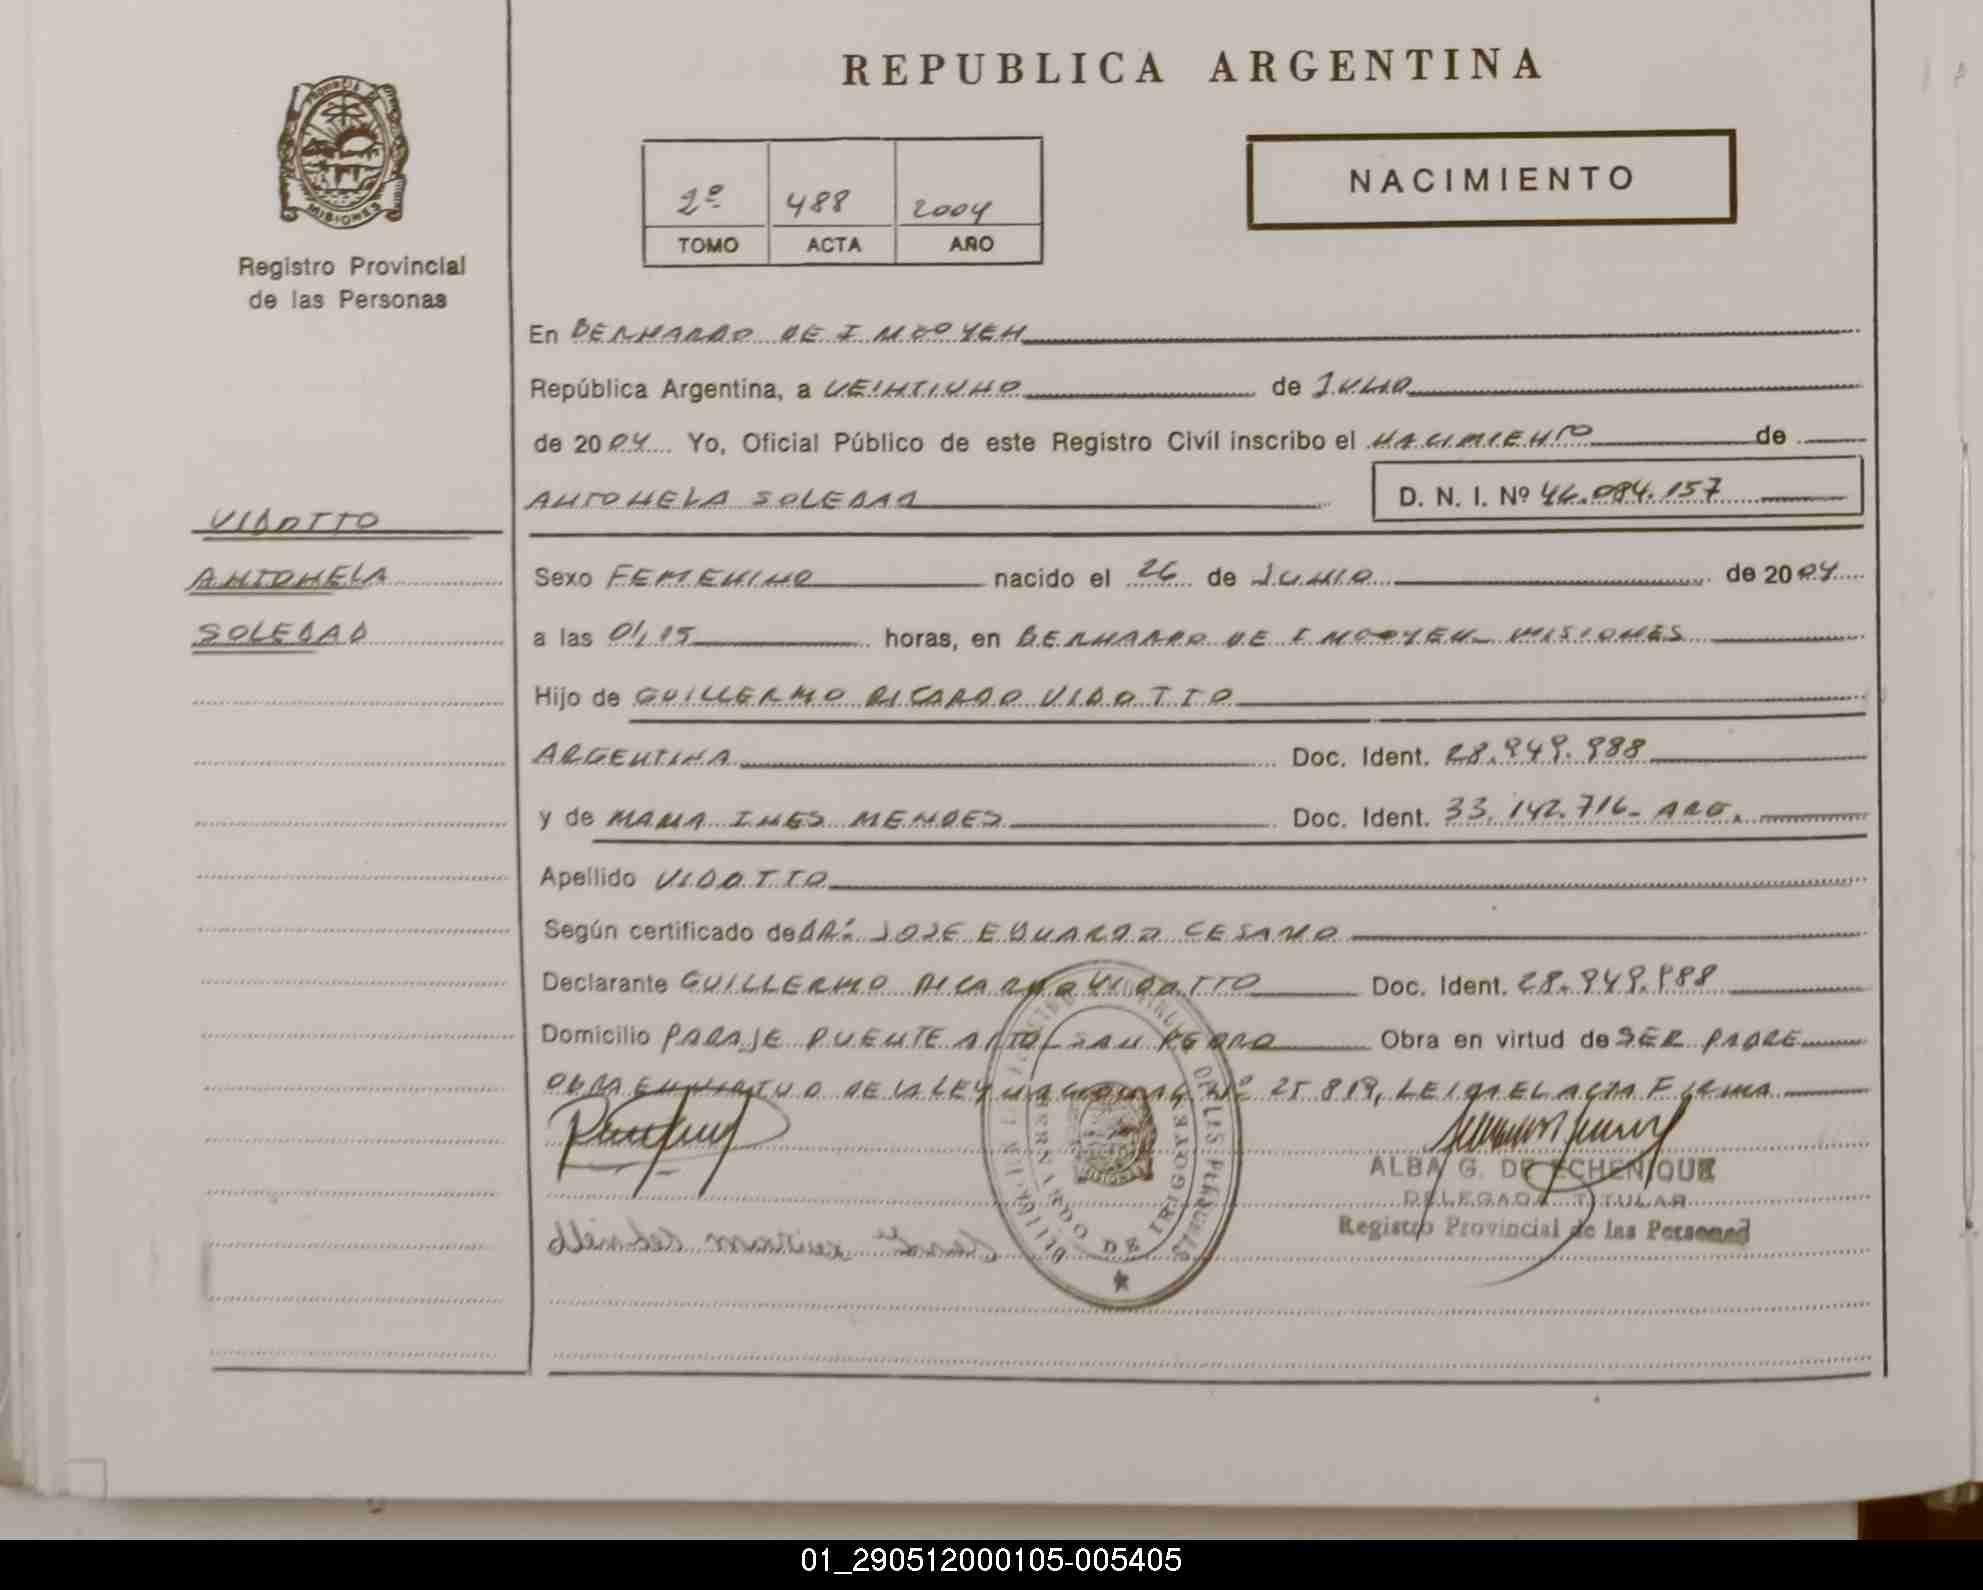 REPUBLICA ARGENTINA
PROVINCIA DE
MISIONES
Registro Provincial
de las Personas
2º 488 2004
TOMO ACTA AÑO
NACIMIENTO
En BERNARDO DE IRIGOYEN
República Argentina, a VEINTIUNO de JULIO
de 2004 Yo, Oficial Público de este Registro Civil inscribo el NACIMIENTO de
ANTONELA SOLEDAD D. N. I. Nº 46.084.157
VIDOTTO
ANTONELA
SOLEDAD
Sexo FEMENINO nacido el 26 de JUNIO de 2004
a las 01,15 horas, en BERNARDO DE IRIGOYEN - MISIONES
Hijo de GUILLERMO RICARDO VIDOTTO
ARGENTINA Doc. Ident. 28.949.988
y de MARIA INES MENDES Doc. Ident. 33.142.716- ARG.
Apellido VIDOTTO
Según certificado de DR. JOSE EDUARDO CESANO
Declarante GUILLERMO RICARDO VIDOTTO Doc. Ident. 28.949.988
Domicilio PARAJE PUENTE ALTO - SAN PEDRO Obra en virtud de SER PADRE
OBRA EN VIRTUD DE LA LEY NACIONAL Nº 25819, LEIDA EL ACTA FIRMA
ALBA G. DE ECHENIQUE
DELEGADA TITULAR
Registro Provincial de las Personas
BERNARDO DE IRIGOYEN
01_290512000105-005405